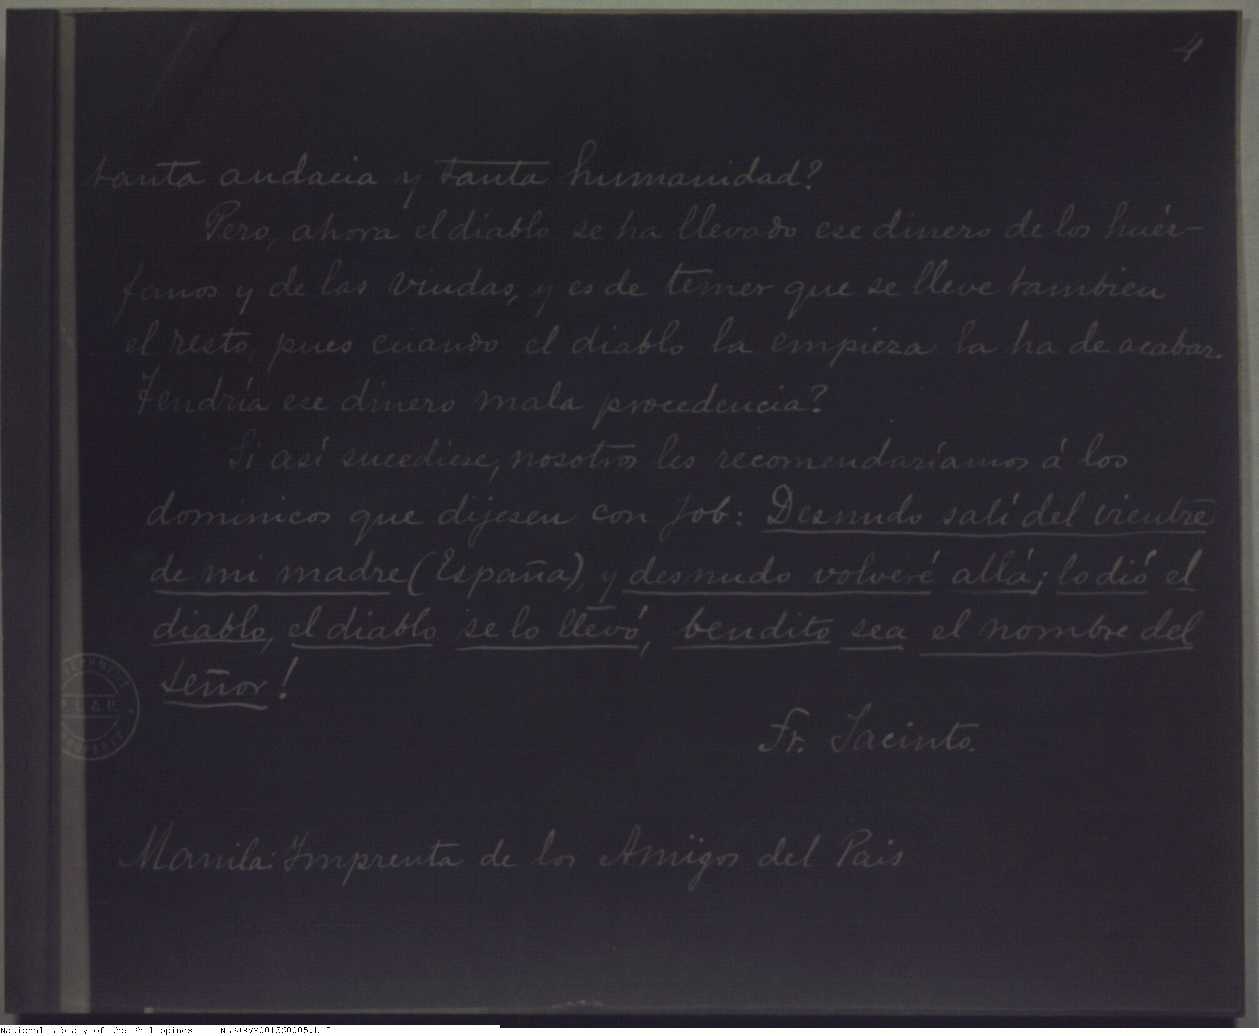 4
tanta audacia y tanta humanidad?
Pero, ahora el diablo se ha llevado ese dinero de los huér-
fanos y de las viudas, y es de temer que se lleve tambien
el resto, pues cuando el diablo la empieza la ha de acabar.
Tendría ese dinero mala procedencia?
Si así sucediese, nosotros les recomendaríamos á los
dominicos que dijesen con Job: Desnudo salí del vientre
de mi madre (España), y desnudo volveré allá; lo dió el
diablo, el diablo se lo llevó, bendito sea el nombre del
Señor!
Fr. Jacinto.
Manila: Imprenta de los Amigos del Pais
National Library of the Philippines